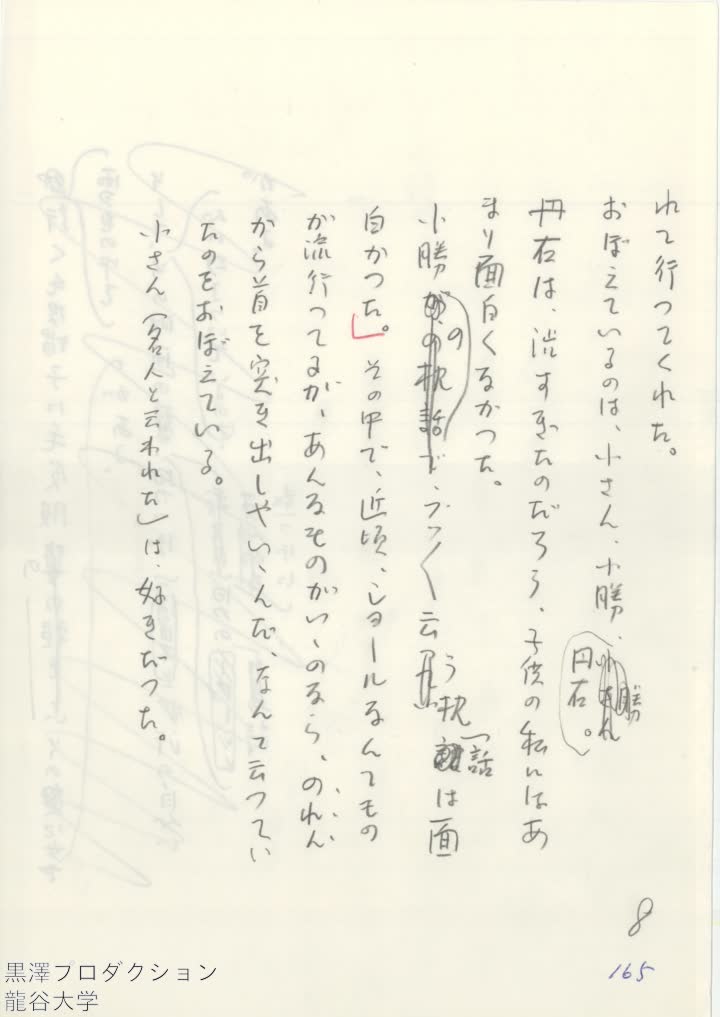 れて行つてくれた。
おぼえているのは、小さん、小勝、円右。
円右は、渋すぎたのだろう、子供の私にはあ
まり面白くなかつた。
小勝の、ブツ〱云う枕話は面
白かつた。その中で、近頃、ショールなんてもの
が流行つてるが、あんなものがいゝのなら、のれん
から首を突き出しやいゝんだ、なんて云つてい
たのをおぼえている。
小さん（名人と云われた）は、好きだつた。
8
165
黒澤プロダクション
龍谷大学